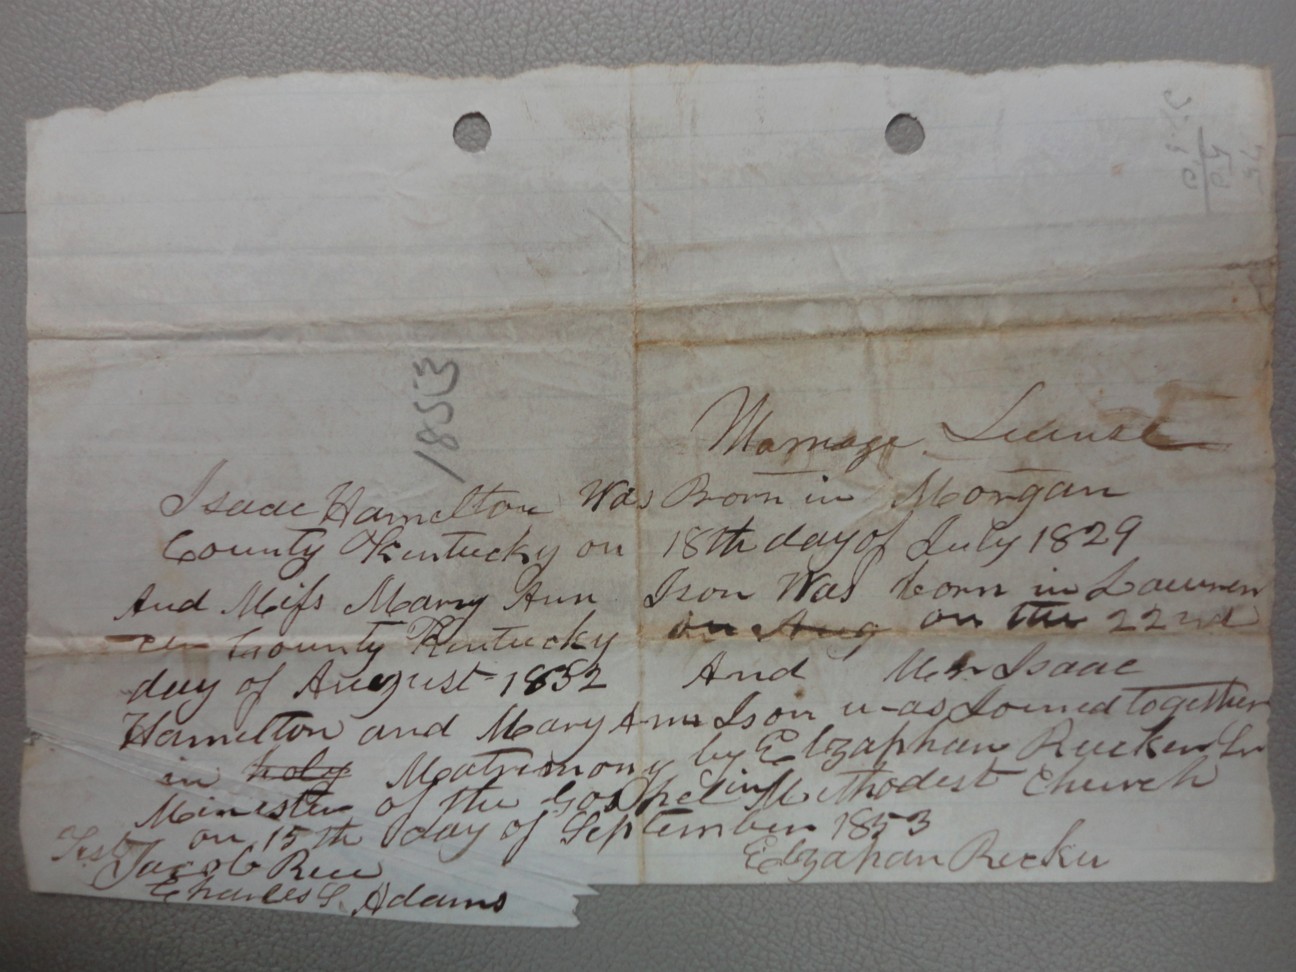 1853
Marriage License
Isaac Hamelton Was Born in Morgan
County Kentucky on 18th day of July 1829
And Miss Mary Ann Ison Was born in Lawren
ce County Kentucky on Aug on the 22nd
day of August 1832 And Mr Isaac
Hamelton and Mary Ann Ison was Joined together
in holy Matrimony by Elzaphan Rucker
Minester of the Gosphel in Methodest Church
on 15th day of September 1853
Test Jacob Rice Elzaphan Rucker
Charles S. Adams